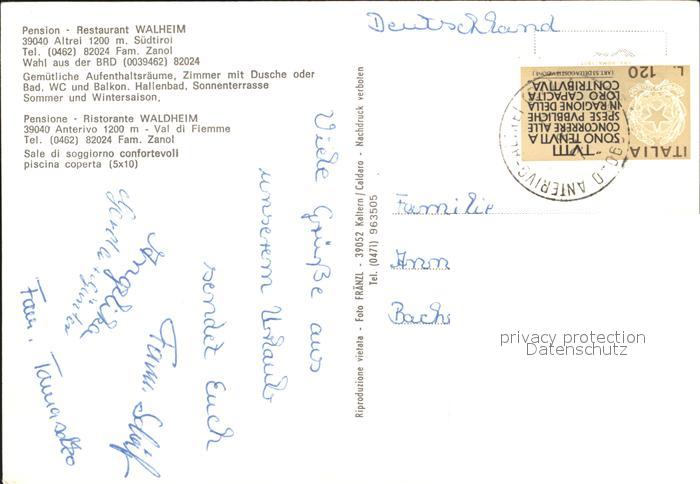 Pension - Restaurant WALHEIM
39040 Altrei 1200 m. Südtirol
Tel. (0462) 82024 Fam. Zanol
Wahl aus der BRD (0039462) 82024
Gemütliche Aufenthaltsräume, Zimmer mit Dusche oder
Bad, WC und Balkon. Hallenbad, Sonnenterrasse
Sommer und Wintersaison.
Pensione - Ristorante WALDHEIM
39040 Anterivo 1200 m - Val di Fiemme
Tel. (0462) 82024 Fam. Zanol
Sale di soggiorno confortevoli
piscina coperta (5x10)
Viele Grüße aus
unserem Urlaub
sendet Euch
Fam. 
Angelika
Günter
Fam.
Riproduzione vietata - Foto FRÄNZL - 39052 Kaltern/Caldaro - Nachdruck verboten
Tel. (0471) 963505
Deutschland
L. 120
ITALIA
"TUTTI
SONO TENUTI A
CONCORRERE ALLE
SPESE PUBBLICHE
IN RAGIONE DELLA
LORO CAPACITÀ
CONTRIBUTIVA
(ART. 53 DELLA COSTITUZIONE)
ANTERIVO-ALTREI
Familie
Ann
Bachs
privacy protection
Datenschutz